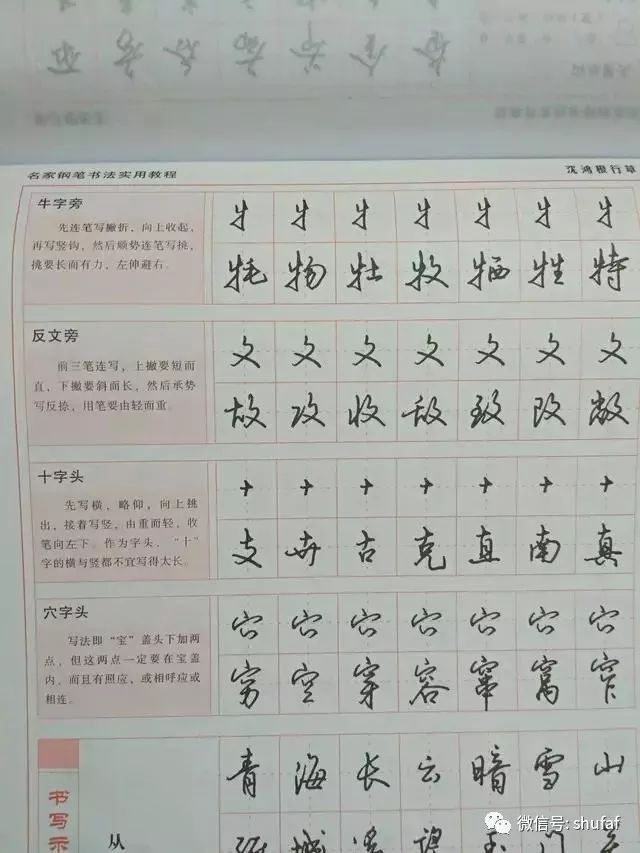 名家钢笔书法实用教程
沈鸿根行草
牛字旁
先连笔写撇折，向上收起，
再写竖钩，然后顺势连笔写挑，
挑要长而有力，左伸避右。
牜 牜 牜 牜 牜 牜 牜
牦 物 牡 牧 牺 牲 特
反文旁
前三笔连写，上撇要短而
直，下撇要斜而长，然后承势
写反捺，用笔要由轻而重。
攵 攵 攵 攵 攵 攵 攵
故 攻 收 敌 致 改 敞
十字头
先写横，略仰，向上挑
出，接着写竖，由重而轻，收
笔向左下。作为字头，“十”
字的横与竖都不宜写得太长。
十 十 十 十 十 十 十
支 卉 古 克 直 南 真
穴字头
写法即“宝”盖头下加两
点，但这两点一定要在宝盖
内，而且有照应，或相呼应或
相连。
穴 穴 穴 穴 穴 穴 穴
穷 空 穿 容 窜 窝 窄
书写示
从
青 海 长 云 暗 雪 山
城 遥 望 玉 门
微信号: shufaf